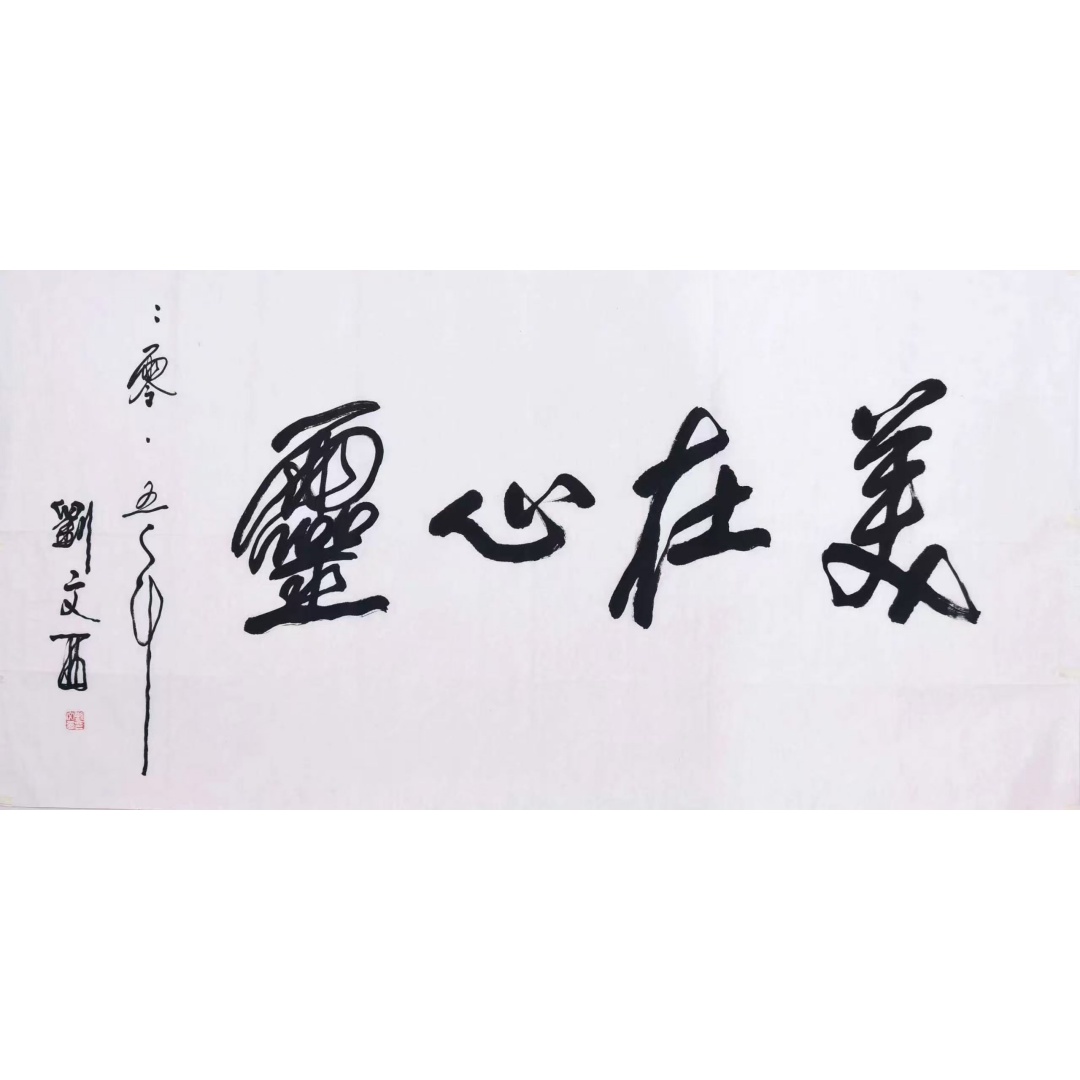 美在心靈
二零一五年
劉文西